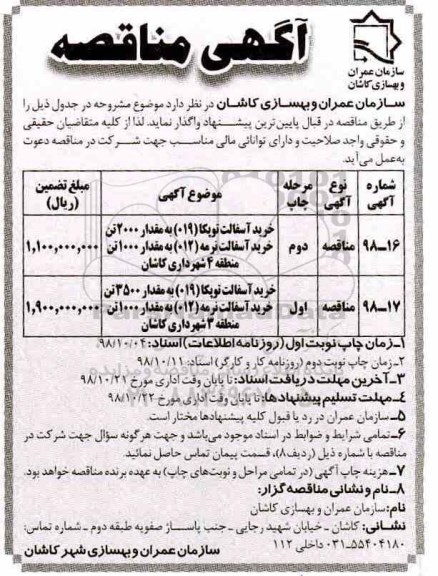 آگهی مناقصه
سازمان عمران
وبهسازی کاشان
سازمان عمران و بهسازی کاشان در نظر دارد موضوع مشروحه در جدول ذیل را
از طریق مناقصه در قبال پایین‌ترین پیشنهاد واگذار نماید. لذا از کلیه متقاضیان حقیقی
و حقوقی واجد صلاحیت و دارای توانائی مالی مناسب جهت شرکت در مناقصه دعوت
به‌عمل می‌آید.
شماره آگهی | نوع آگهی | مرحله چاپ | موضوع آگهی | مبلغ تضمین (ریال)
۱۶ــ۹۸ | مناقصه | دوم | خرید آسفالت توپکا (۰۱۹) به مقدار ۲۰۰۰ تن
خرید آسفالت نرمه (۰۱۲) به مقدار ۱۰۰۰ تن
منطقه ۴ شهرداری کاشان | ۱,۱۰۰,۰۰۰,۰۰۰
۱۷ــ۹۸ | مناقصه | اول | خرید آسفالت توپکا (۰۱۹) به مقدار ۳۵۰۰ تن
خرید آسفالت نرمه (۰۱۲) به مقدار ۱۰۰۰ تن
منطقه ۳ شهرداری کاشان | ۱,۹۰۰,۰۰۰,۰۰۰
۱ـ زمان چاپ نوبت اول (روزنامه اطلاعات) اسناد: ۹۸/۱۰/۰۴
۲ـ زمان چاپ نوبت دوم (روزنامه کار و کارگر) اسناد: ۹۸/۱۰/۱۱
۳ـ آخرین مهلت دریافت اسناد: تا پایان وقت اداری مورخ ۹۸/۱۰/۲۱
۴ـ مهلت تسلیم پیشنهادها: تا پایان وقت اداری مورخ ۹۸/۱۰/۲۲
۵ـ سازمان عمران در رد یا قبول کلیه پیشنهادها مختار است.
۶ـ تمامی شرایط و ضوابط در اسناد موجود می‌باشد و جهت هر گونه سؤال جهت شرکت در
مناقصه با شماره ذیل (ردیف ۸)، قسمت پیمان تماس حاصل نمائید.
۷ـ هزینه چاپ آگهی (در تمامی مراحل و نوبت‌های چاپ) به عهده برنده مناقصه خواهد بود.
۸ـ نام و نشانی مناقصه گزار:
نام: سازمان عمران و بهسازی کاشان
نشانی: کاشان ـ خیابان شهید رجایی ـ جنب پاساژ صفویه طبقه دوم ـ شماره تماس:
۵۵۴۰۴۱۸۰ـ۰۳۱ داخلی ۱۱۲
سازمان عمران و بهسازی شهر کاشان